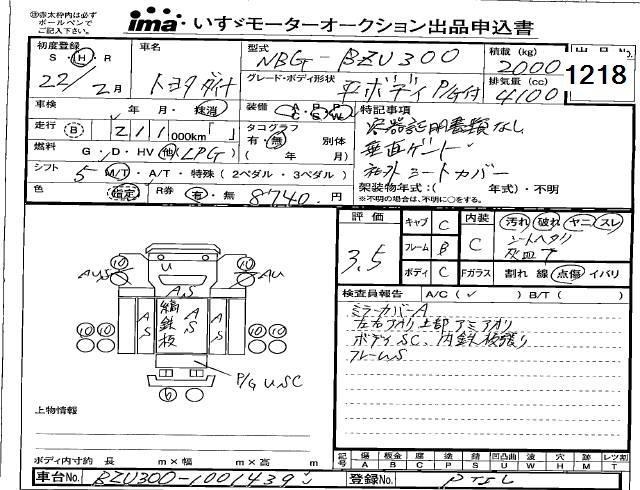 ㊟赤太枠内は必ず
ボールペンで
ご記入下さい
ima いすゞモーターオークション出品申込書
初度登録
S・H・R
22/2月
車名
トヨタ ダイナ
型式
NBG-BZU300
グレード・ボディ形状
平ボディ P/G付
積載 (kg)
2000
排気量 (cc)
4100
出品No.
1218
車検
年 月・抹消
装備
A/C P/S P/W
特記事項
容器証明書類なし
垂直ゲート
社外シートカバー
架装物年式：( 年式)・不明
※不明の場合は、不明に○をする。
走行 B 211 000km
タコグラフ
有・無 別体
( 年 月)
燃料 G・D・HV 他(LPG)
シフト 5 M/T・A/T・特殊（2ペダル・3ペダル）
色 指定
R券 有・無 8740円
評価
3.5
キャブ C
フレーム B
ボディ C
内装
C
汚れ 破れ ヤニ スレ
シートヘタリ
灰皿下
Fガラス 割れ 線 点傷 イバリ
検査員報告 A/C(✓) B/T( )
ミラーカバーA
左右アオリ上部アミアオリ
ボディSC、内鉄板張り
フレームS
10 10
U
AUS AU
A,S
AS
縞鉄板
AS
AS
10 10 10 10
P/G USC
6
上物情報
ボディ内寸約 長 m×幅 m×高 m
記号 傷A 板金B 腐C 塗P 錆S 凹凸曲U 波W 穴H 跡M レツ割T
車台No. BZU300-1001439
登録No.